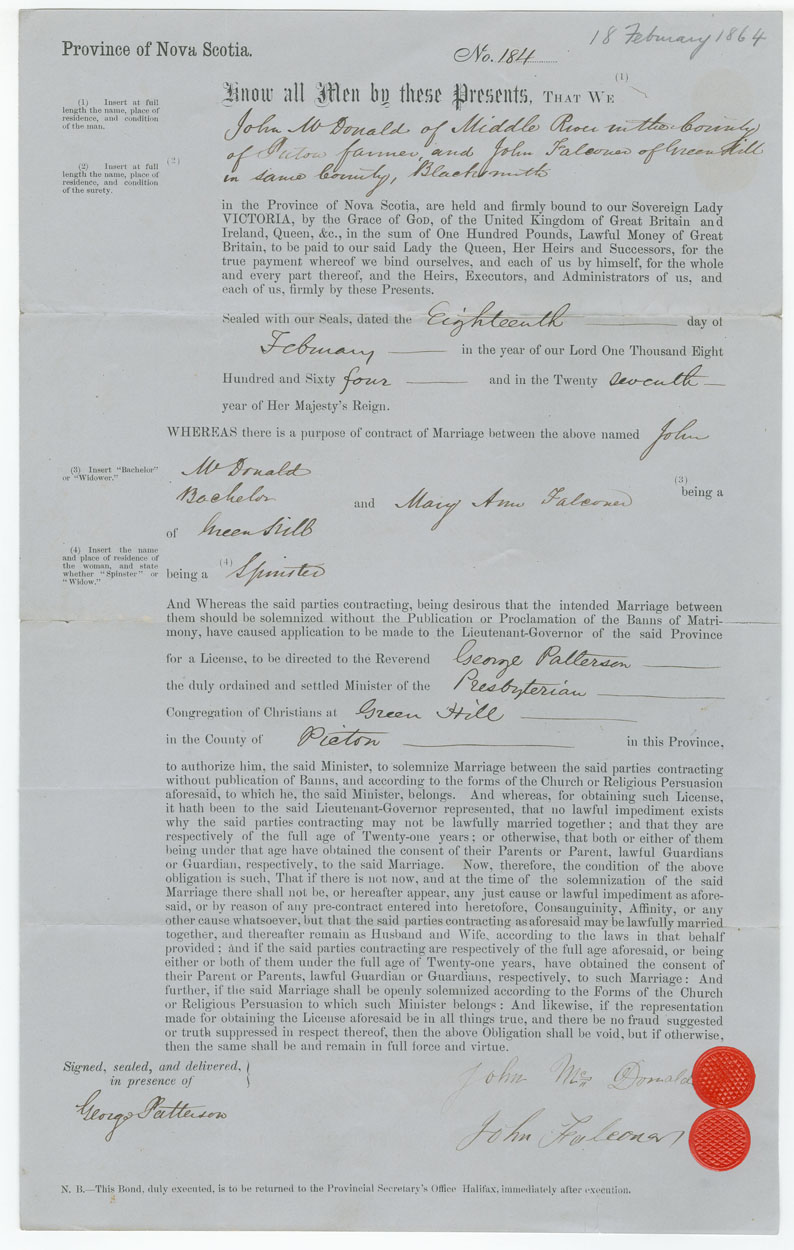 18 February 1864
Province of Nova Scotia.
No. 184
(1)
Know all Men by these Presents, THAT WE
(1) Insert at full
length the name, place of
residence, and condition
of the man.
John McDonald of Middle River in the County
(2)
of Pictou farmer, and John Falconer of Green Hill
(2) Insert at full
length the name, place of
residence, and condition
of the surety.
in same County, Blacksmith
in the Province of Nova Scotia, are held and firmly bound to our Sovereign Lady
VICTORIA, by the Grace of GOD, of the United Kingdom of Great Britain and
Ireland, Queen, &c., in the sum of One Hundred Pounds, Lawful Money of Great
Britain, to be paid to our said Lady the Queen, Her Heirs and Successors, for the
true payment whereof we bind ourselves, and each of us by himself, for the whole
and every part thereof, and the Heirs, Executors, and Administrators of us, and
each of us, firmly by these Presents.
Sealed with our Seals, dated the Eighteenth day of
February in the year of our Lord One Thousand Eight
Hundred and Sixty four and in the Twenty seventh
year of Her Majesty's Reign.
WHEREAS there is a purpose of contract of Marriage between the above named John
(3) Insert "Bachelor"
or "Widower."
McDonald (3) being a
Bachelor and Mary Ann Falconer
of Green Hill
(4) Insert the name
and place of residence of
the woman, and state
whether "Spinster" or
"Widow."
being a (4) Spinster
And Whereas the said parties contracting, being desirous that the intended Marriage between
them should be solemnized without the Publication or Proclamation of the Banns of Matri-
mony, have caused application to be made to the Lieutenant-Governor of the said Province
for a License, to be directed to the Reverend George Patterson
the duly ordained and settled Minister of the Presbyterian
Congregation of Christians at Green Hill
in the County of Pictou in this Province,
to authorize him, the said Minister, to solemnize Marriage between the said parties contracting
without publication of Banns, and according to the forms of the Church or Religious Persuasion
aforesaid, to which he, the said Minister, belongs. And whereas, for obtaining such License,
it hath been to the said Lieutenant-Governor represented, that no lawful impediment exists
why the said parties contracting may not be lawfully married together; and that they are
respectively of the full age of Twenty-one years; or otherwise, that both or either of them
being under that age have obtained the consent of their Parents or Parent, lawful Guardians
or Guardian, respectively, to the said Marriage. Now, therefore, the condition of the above
obligation is such, That if there is not now, and at the time of the solemnization of the said
Marriage there shall not be, or hereafter appear, any just cause or lawful impediment as afore-
said, or by reason of any pre-contract entered into heretofore, Consanguinity, Affinity, or any
other cause whatsoever, but that the said parties contracting as aforesaid may be lawfully married
together, and thereafter remain as Husband and Wife, according to the laws in that behalf
provided; and if the said parties contracting are respectively of the full age aforesaid, or being
either or both of them under the full age of Twenty-one years, have obtained the consent of
their Parent or Parents, lawful Guardian or Guardians, respectively, to such Marriage: And
further, if the said Marriage shall be openly solemnized according to the Forms of the Church
or Religious Persuasion to which such Minister belongs: And likewise, if the representation
made for obtaining the License aforesaid be in all things true, and there be no fraud suggested
or truth suppressed in respect thereof, then the above Obligation shall be void, but if otherwise,
then the same shall be and remain in full force and virtue.
Signed, sealed, and delivered,
in presence of
John McDonald
George Patterson
John Falconer
N. B.—This Bond, duly executed, is to be returned to the Provincial Secretary's Office Halifax, immediately after execution.